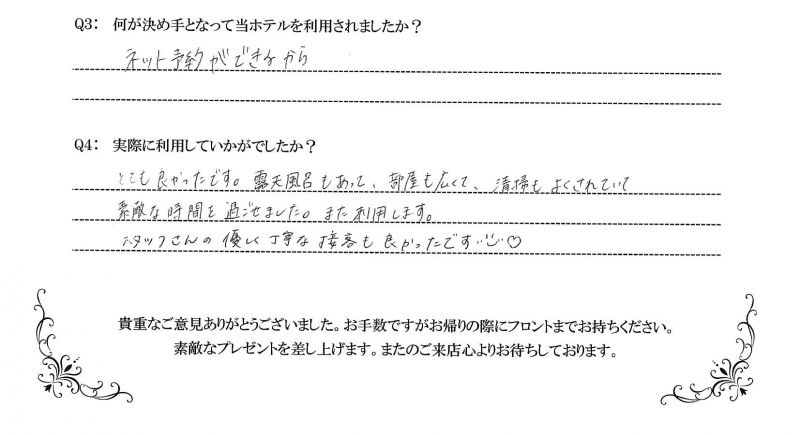 Q3: 何が決め手となって当ホテルを利用されましたか？
ネット予約ができるから
Q4: 実際に利用していかがでしたか？
とても良かったです。露天風呂もあって、部屋も広くて、清掃もよくされていて
素敵な時間を過ごせました。また利用します。
スタッフさんの優しく丁寧な接客も良かったです♡
貴重なご意見ありがとうございました。お手数ですがお帰りの際にフロントまでお持ちください。
素敵なプレゼントを差し上げます。またのご来店心よりお待ちしております。